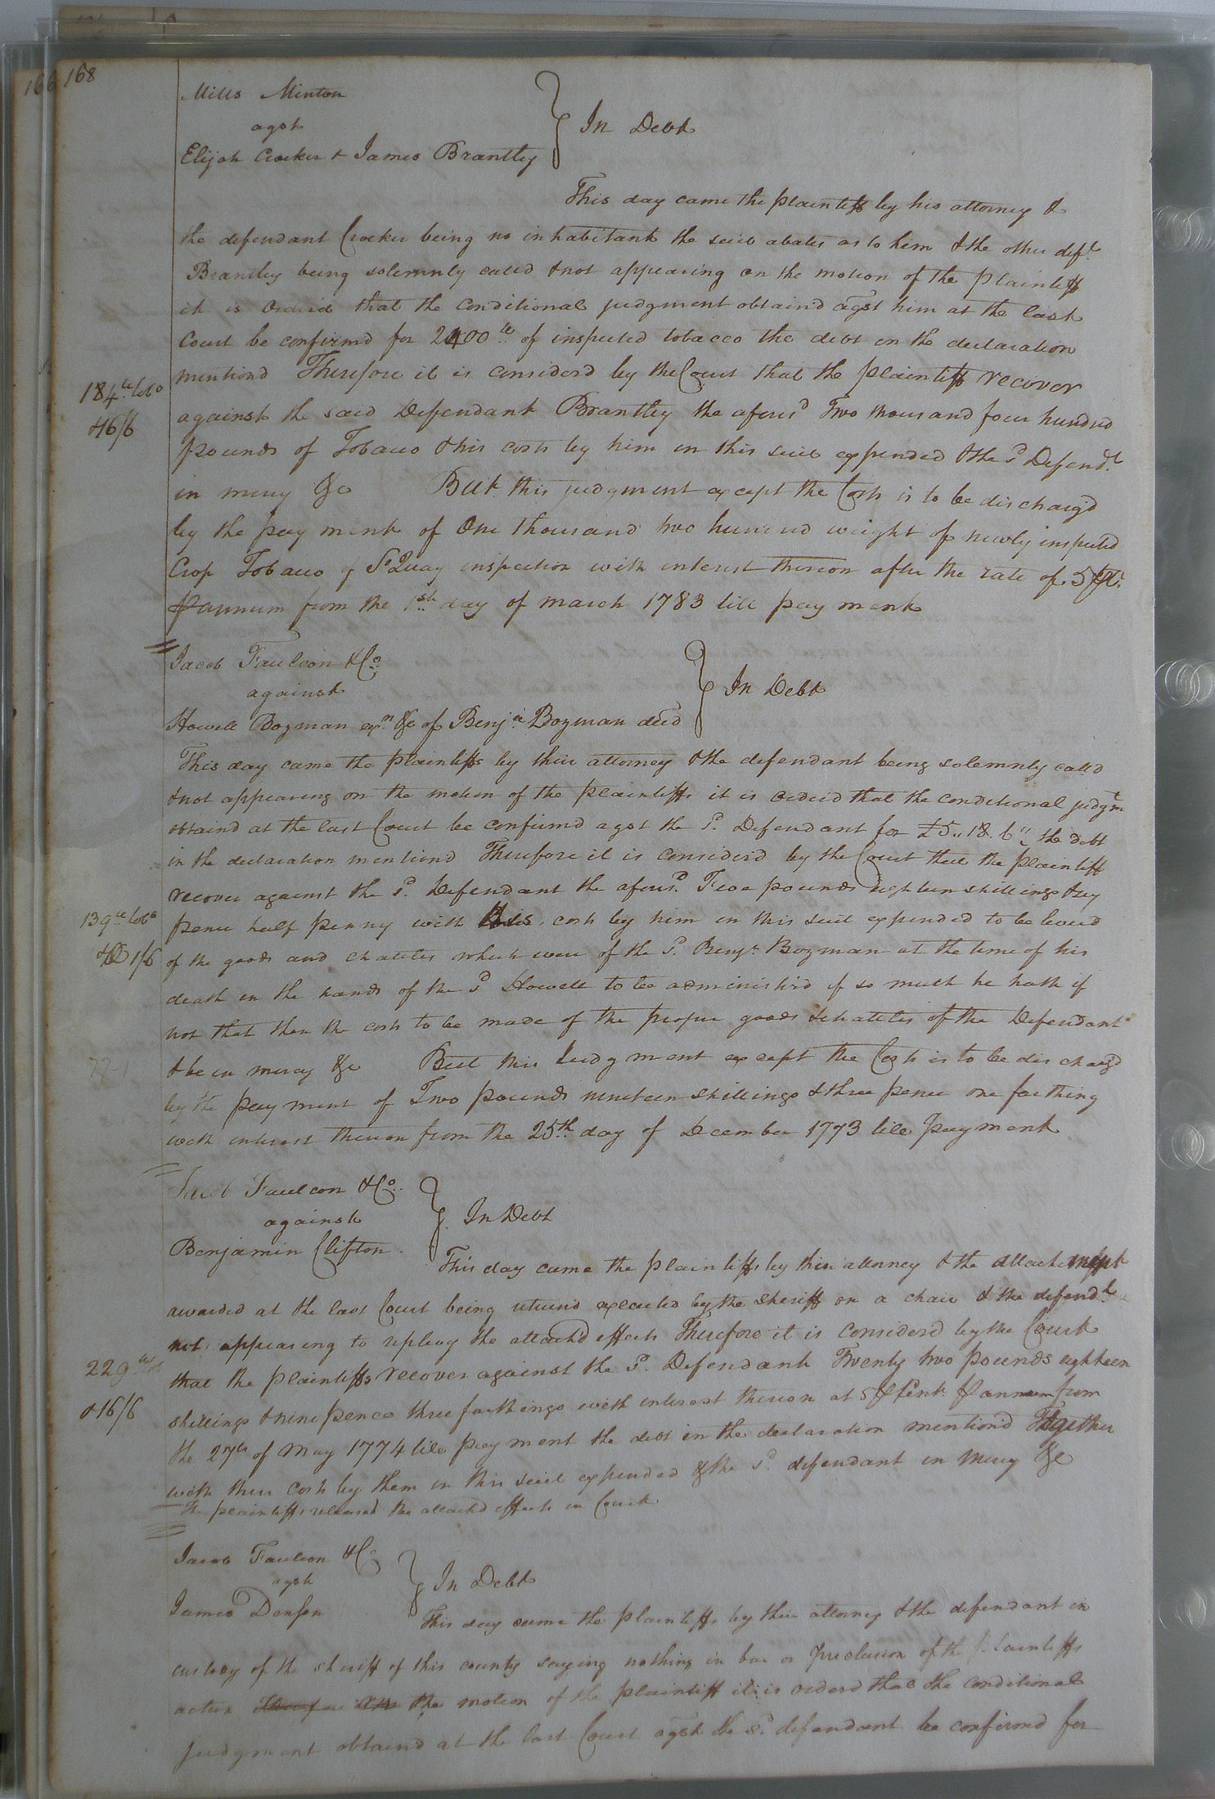 166 168
Mills Minton
agst
Elijah Crocker & James Brantley
In Debt
This day came the plaintiff by his attorney &
the defendant Crocker being no inhabitant the suit abates as to him & the other deft
Brantley being solemnly called & not appearing on the motion of the plaintiff
it is orderd that the conditional judgment obtaind agst him at the last
Court be confirmd for 2400 lb of inspected tobacco the debt in the declaration
mentiond Therefore it is considerd by the Court that the plaintiff recover
184 lb tobo
& 16/6
against the said Defendant Brantley the aforesd Two thousand four hundred
pounds of Tobacco & his costs by him in this suit expended & the sd Defendt
in mercy &c But this judgment except the Costs is to be dischargd
by the payment of One thousand two hundred weight of newly inspected
Crop Tobacco of Sº Quay inspection with interest thereon after the rate of 5 pCt
pannum from the 1st day of march 1783 till payment
Jacob Faulcon & Co
against
Howell Bozman exr &c of Benja Bozman decd
In Debt
This day came the plaintiffs by their attorney & the defendant being solemnly calld
& not appearing on the motion of the plaintiffs it is orderd that the conditional judgmt
obtaind at the last Court be confirmd agst the sd Defendant for £5.. 18. 6 the debt
in the declaration mentiond Therefore it is considerd by the Court that the plaintiff
recover against the sd Defendant the aforesd Five pounds eighteen shillings & six
139 lb tobo
pence half penny with his costs by him in this suit expended to be levied
of the goods and chatteles which were of the sd Benja Bozman at the time of his
death in the hands of the sd Howell to be administerd if so much he hath if
not that then the costs to be made of the proper goods & chatteles of the Defendant
& be in mercy &c But this Judgment except the Costs is to be dischargd
by the payment of Two pounds nineteen shillings & three pence one farthing
with interest thereon from the 25th day of December 1773 till payment
Jacob Faulcon & Co.
against
Benjamin Clifton.
In Debt
This day came the plaintiffs by their attorney & the attachment
awarded at the last Court being returnd executed by the Sheriff on a chair & the defendt
not appearing to replevy the attachd effects Therefore it is considerd by the Court
229
& 16/6
that the plaintiffs recover against the sd Defendant Twenty two pounds eighteen
shillings & nine pence three farthings with interest thereon at 5 p Cent pannum from
the 27th of May 1774 till payment the debt in the declaration mentiond Together
with their costs by them in this suit expended & the sd defendant in mercy &c
The plaintiffs released the attachd effects in Court
Jacob Faulcon & Co
agst
James Denson
In Debt
This day came the plaintiffs by their attorney & the defendant in
custody of the Sheriff of this county saying nothing in bar or preclusion of the plaintiffs
action the motion of the plaintiff it is orderd that the conditional
judgment obtaind at the last Court agst the sd defendant be confirmd for